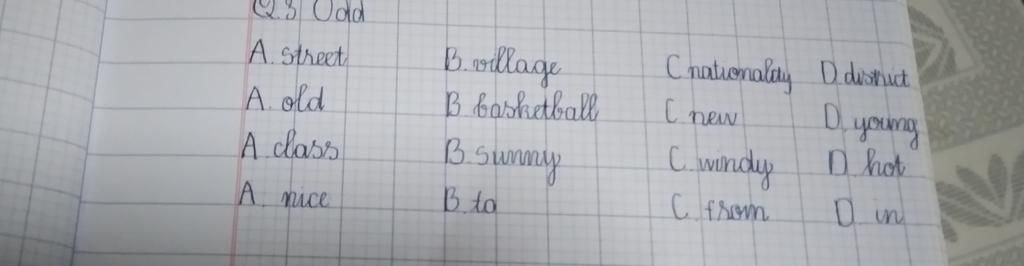 Q.3 Odd
A. street B. village C nationality D. district
A. old B basketball C new D. young
A. class B sunny C. windy D hot
A. nice B. to C. from D. in